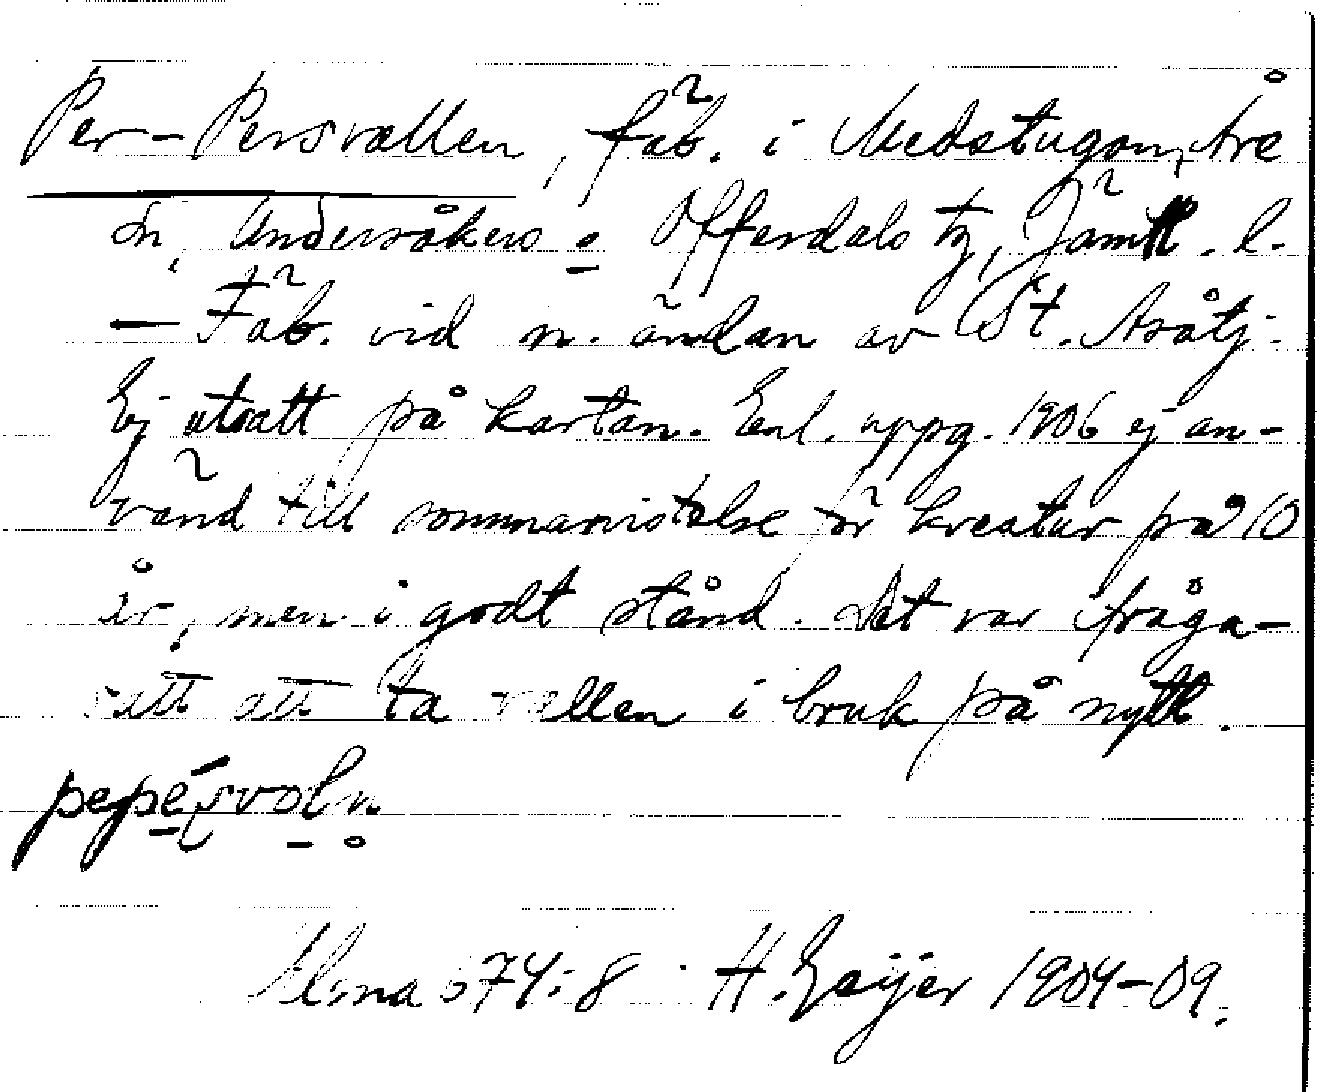 Per-Persvallen, fäb. i Medstugan, Åre
sn, Undersåkers o Offerdals tg, Jämtl. l.
— Fäb. vid n. ändan av St. Åsåtj.
Ej utsatt på kartan. Enl. uppg. 1906 ej an-
vänd till sommarvistelse för kreatur på 10
år, men i godt stånd. Det var ifråga-
satt att ta vallen i bruk på nytt.
Ulma 574:8 H. Geijer 1904-09.